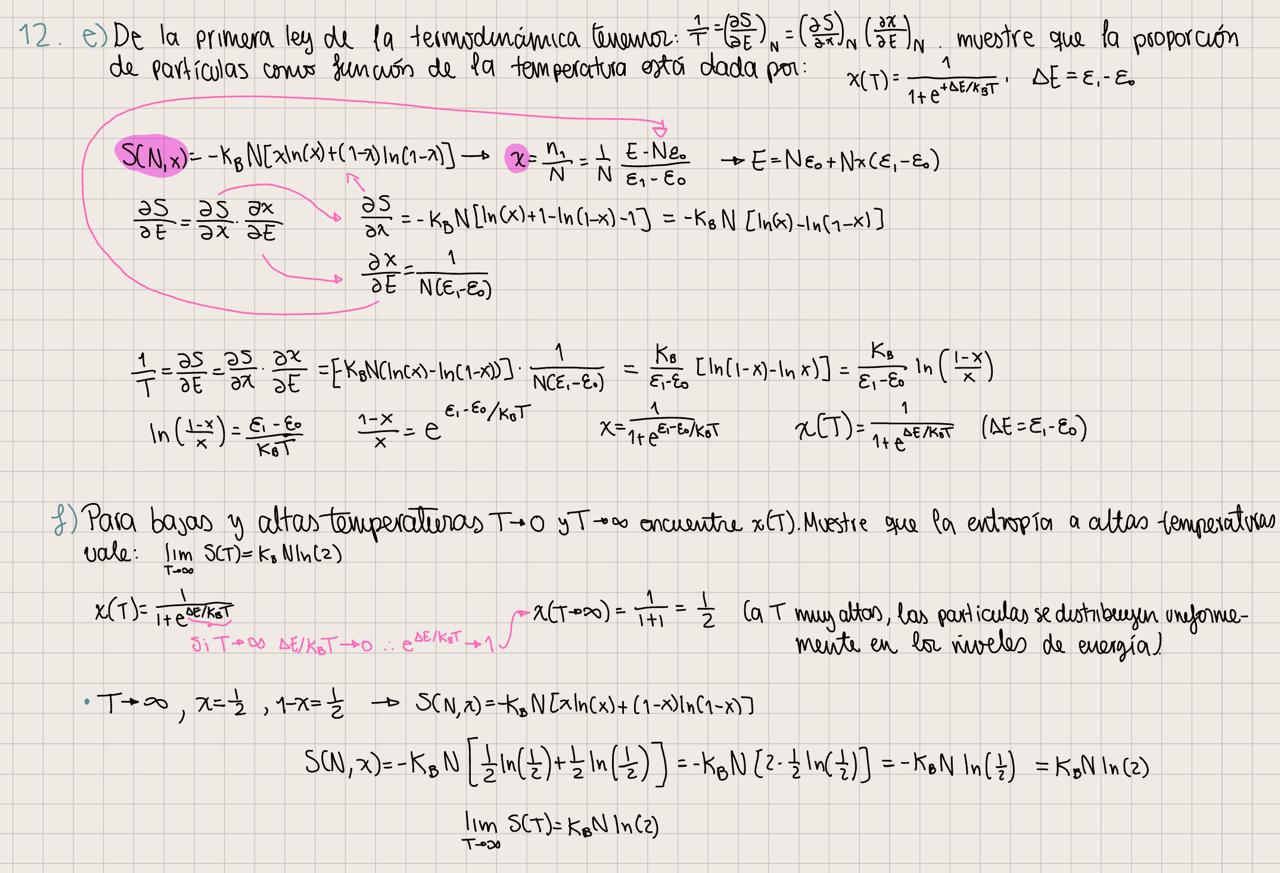 12. e) De la primera ley de la termodinámica tenemos: 1/T = (∂S/∂E)_N = (∂S/∂x)_N (∂x/∂E)_N . muestre que la proporción
de partículas como función de la temperatura está dada por: x(T) = 1/(1+e^{+ΔE/K_BT}) . ΔE = ε₁-ε₀
S(N,x) = -K_B N[xln(x)+(1-x)ln(1-x)] → x = n₁/N = 1/N (E-Nε₀)/(ε₁-ε₀) → E = Nε₀ + Nx(ε₁-ε₀)
∂S/∂E = ∂S/∂x · ∂x/∂E ∂S/∂x = -K_B N[ln(x)+1-ln(1-x)-1] = -K_B N [ln(x)-ln(1-x)]
∂x/∂E = 1/(N(ε₁-ε₀))
1/T = ∂S/∂E = ∂S/∂x · ∂x/∂E = [-K_B N(ln(x)-ln(1-x))] · 1/(N(ε₁-ε₀)) = K_B/(ε₁-ε₀) [ln(1-x)-ln x)] = K_B/(ε₁-ε₀) ln((1-x)/x)
ln((1-x)/x) = (ε₁-ε₀)/(K_BT) (1-x)/x = e^{ε₁-ε₀/K_BT} x = 1/(1+e^{ε₁-ε₀/K_BT}) x(T) = 1/(1+e^{ΔE/K_BT}) (ΔE = ε₁-ε₀)
f) Para bajas y altas temperaturas T→0 y T→∞ encuentre x(T). Muestre que la entropía a altas temperaturas
vale: lim_{T→∞} S(T) = K_B N ln(2)
x(T) = 1/(1+e^{ΔE/K_BT}) x(T→∞) = 1/(1+1) = 1/2 (a T muy altas, las particulas se distribuyen uniforme-
si T→∞ ΔE/K_BT→0 ∴ e^{ΔE/K_BT}→1 mente en los niveles de energía)
• T→∞ , x=1/2 , 1-x=1/2 → S(N,x) = -K_B N[xln(x)+(1-x)ln(1-x)]
S(N,x) = -K_B N [1/2 ln(1/2) + 1/2 ln(1/2)] = -K_B N [2·1/2 ln(1/2)] = -K_B N ln(1/2) = K_B N ln(2)
lim_{T→∞} S(T) = K_B N ln(2)